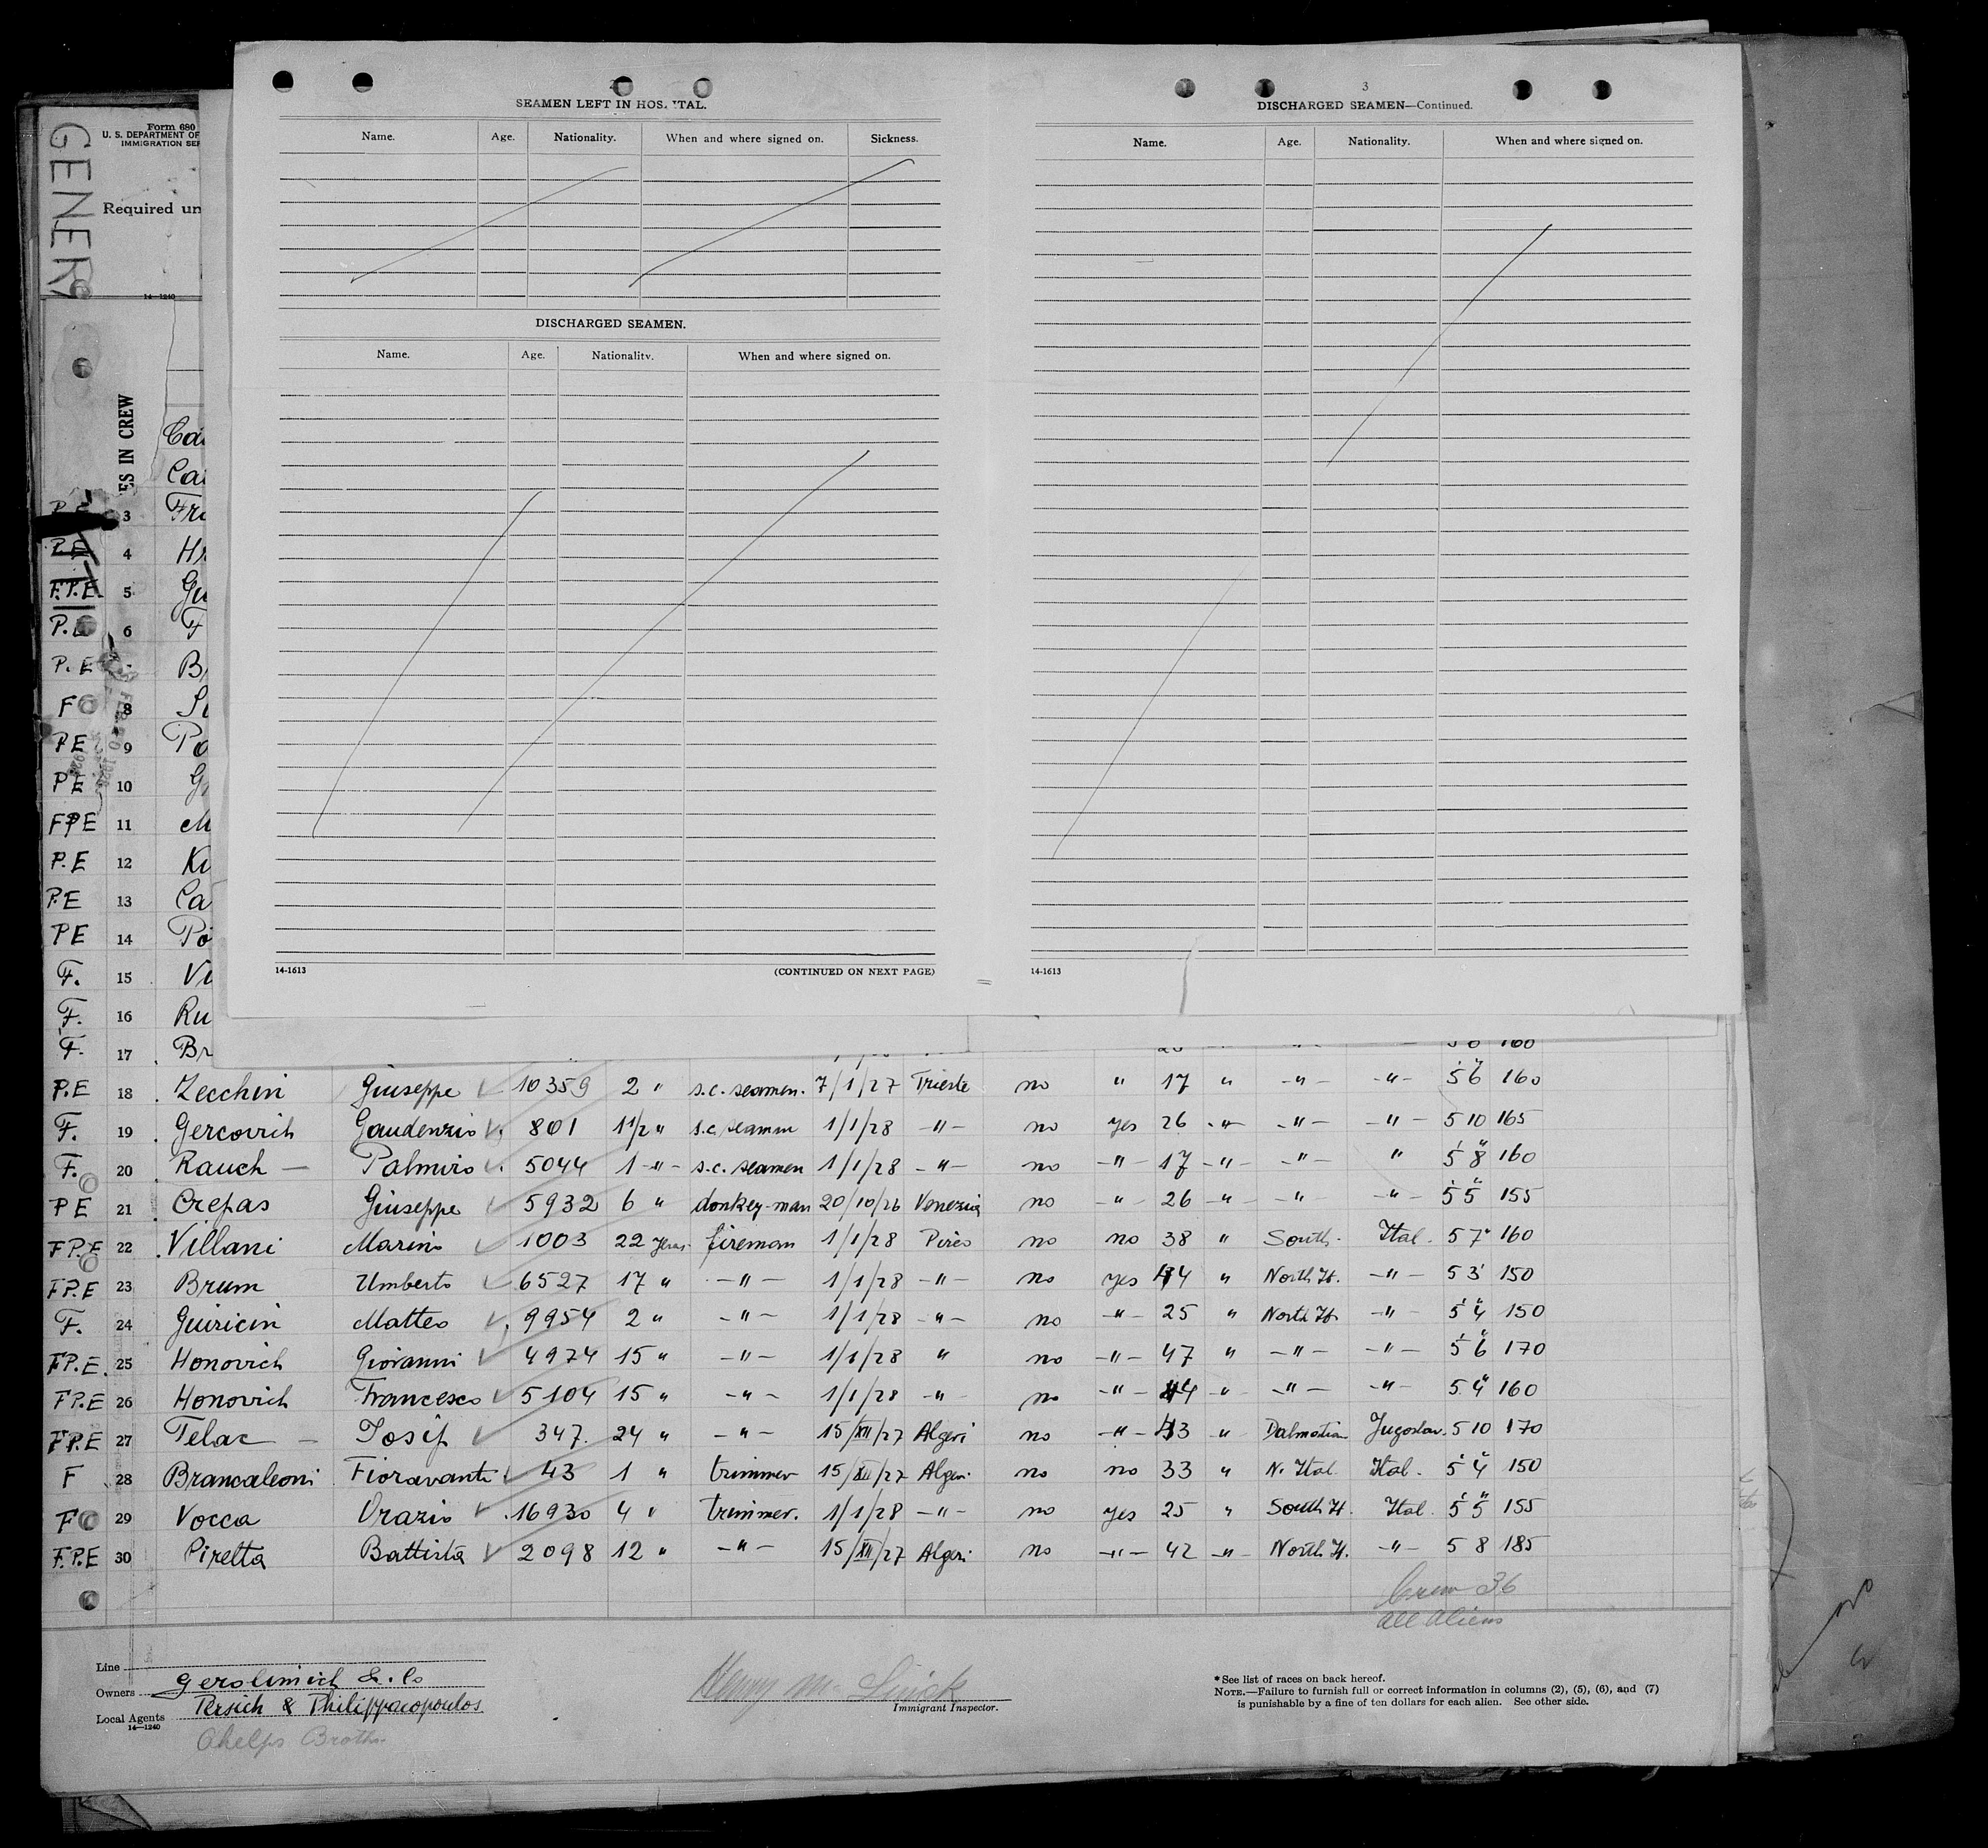 SEAMEN LEFT IN HOS. TAL.
Name. Age. Nationality. When and where signed on. Sickness.
DISCHARGED SEAMEN.
Name. Age. Nationality. When and where signed on.
14-1613 (CONTINUED ON NEXT PAGE)
3
DISCHARGED SEAMEN—Continued.
Name. Age. Nationality. When and where signed on.
14-1613
GENER
Form 680
U. S. DEPARTMENT OF
IMMIGRATION SER
Required un
14—1240
ES IN CREW
Ca
Ca
P.E 3 Fr
P.E 4 Hr
F.P.E. 5 Gu
P.E 6 F
P.E B
F 8
PE 9 Pa
PE 10 G
FPE 11 M
P.E 12 Ku
P.E 13 Ca
PE 14 Po
F. 15 Vi
F. 16 Ru
F. 17 Br 160
P.E 18 Zecchin Giuseppe 10359 2 " s.c. seamen. 7/1/27 Trieste no " 17 " -"- -"- 5 6 160
F. 19 Gercovich Gaudenzio 801 1 1/2 " s.c seamen 1/1/28 -"- no yes 26 -"- -"- -"- 5 10 165
F. 20 Rauch — Palmiro 5044 1 -"- s.c. seamen 1/1/28 -"- no -"- 17 -"- -"- " 5 8 160
PE 21 Crepas Giuseppe 5932 6 " donkey-man 20/10/26 Venezia no -"- 26 -"- -"- -"- 5 5 155
F P.E 22 Villani Marino 1003 22 years fireman 1/1/28 Pireo no no 38 " South. Ital. 5 7 160
F P.E 23 Brum Umberto 6527 17 " -"- 1/1/28 -"- no yes 44 " North It. -"- 5 3 150
F. 24 Giuricin Matteo 9954 2 " -"- 1/1/28 -"- no -"- 25 " North It. -"- 5 4 150
F P.E. 25 Honovich Giovanni 4974 15 " -"- 1/1/28 " no -"- 47 " -"- -"- 5 6 170
F P.E 26 Honovich Francesco 5104 15 " -"- 1/1/28 -"- no -"- 44 -"- -"- -"- 5 4 160
F P.E 27 Telac — Josif 347. 24 " -"- 15/XII/27 Algeri no -"- 43 " Dalmatian Jugoslav. 5 10 170
F 28 Brancaleoni Fioravante 43 1 " trimmer 15/XII/27 Algeri no no 33 " N. Ital. Ital. 5 4 150
F 29 Vocca Orazio 16930 4 " trimmer. 1/1/28 -"- no yes 25 " South It. Ital. 5 5 155
F.P.E 30 Piretta Battista 2098 12 " -"- 15/XII/27 Algeri no -"- 42 -"- North It. -"- 5 8 185
Crew 36
all aliens
Line
Owners Gerolimich & Co
Local Agents Persich & Philippacopoulos
14—1240
Phelps Broth
Henry M.
Immigrant Inspector.
* See list of races on back hereof.
NOTE.—Failure to furnish full or correct information in columns (2), (5), (6), and (7)
is punishable by a fine of ten dollars for each alien. See other side.